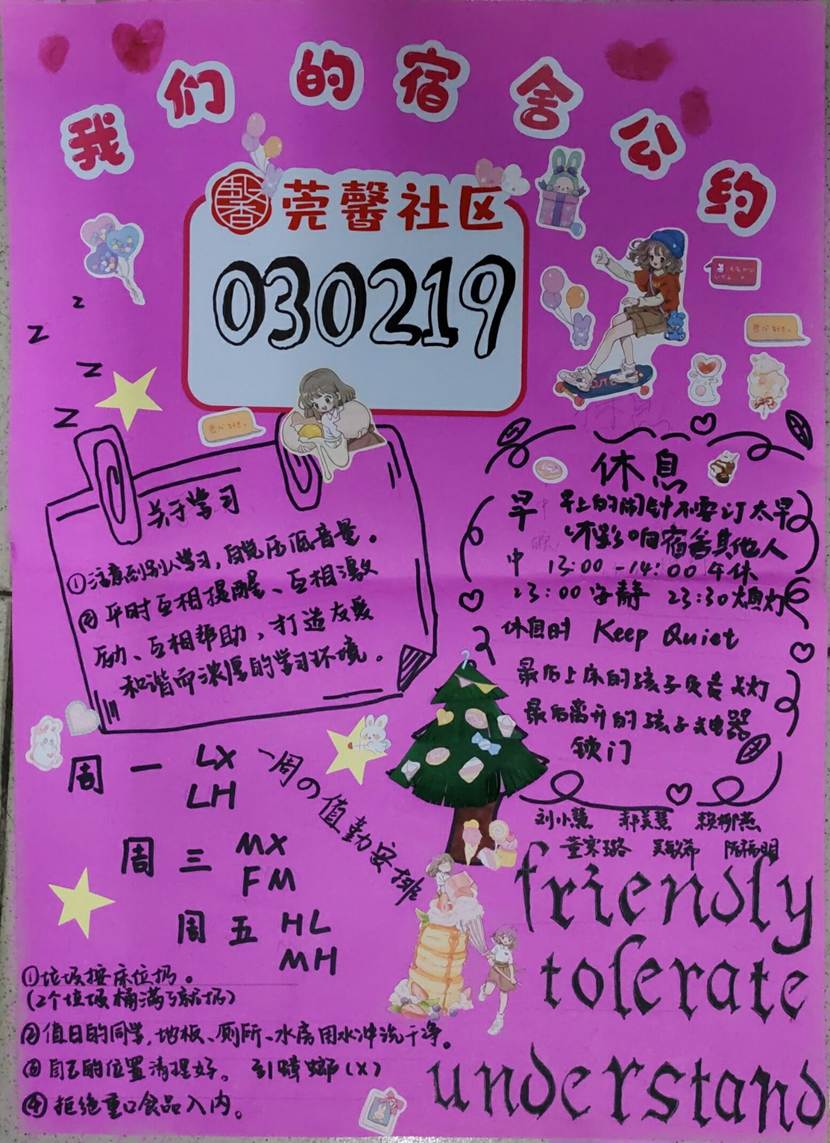 我们的宿舍公约
莞馨社区
030219
z
z
z
z
关于学习
①注意到别人学习，自觉压低音量。
②平时互相提醒、互相激
励、互相帮助，打造友爱
和谐而浓厚的学习环境。
休息
早 早上的闹钟不要订太早
不影响宿舍其他人
中 13:00-14:00午休
23:00安静 23:30熄灯
休息时 Keep Quiet
最后上床的孩子负责关灯
最后离开的孩子关电器
锁门
周一 LX
LH
一周の值勤安排
周三 MX
FM
周五 HL
MH
刘小慧
friendly
tolerate
understand
①垃圾按床位扔。
(2个垃圾桶满了就扔)
②值日的同学,地板、厕所、水房用水冲洗干净。
③自己的位置清理好。 引蟑螂(X)
④拒绝重口食品入内。